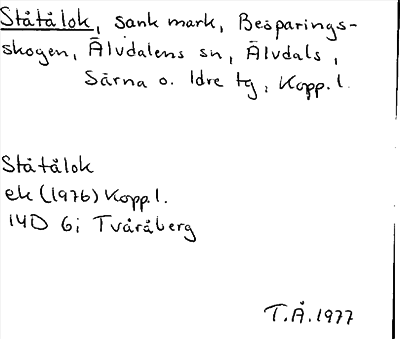 Ståtålok, sank mark, Besparings-
skogen, Älvdalens sn, Älvdals,
Särna o. Idre tg, Kopp.l.
Ståtålok
ek (1976) Kopp.l.
14D 6i Tvåråberg
T.Å.1977